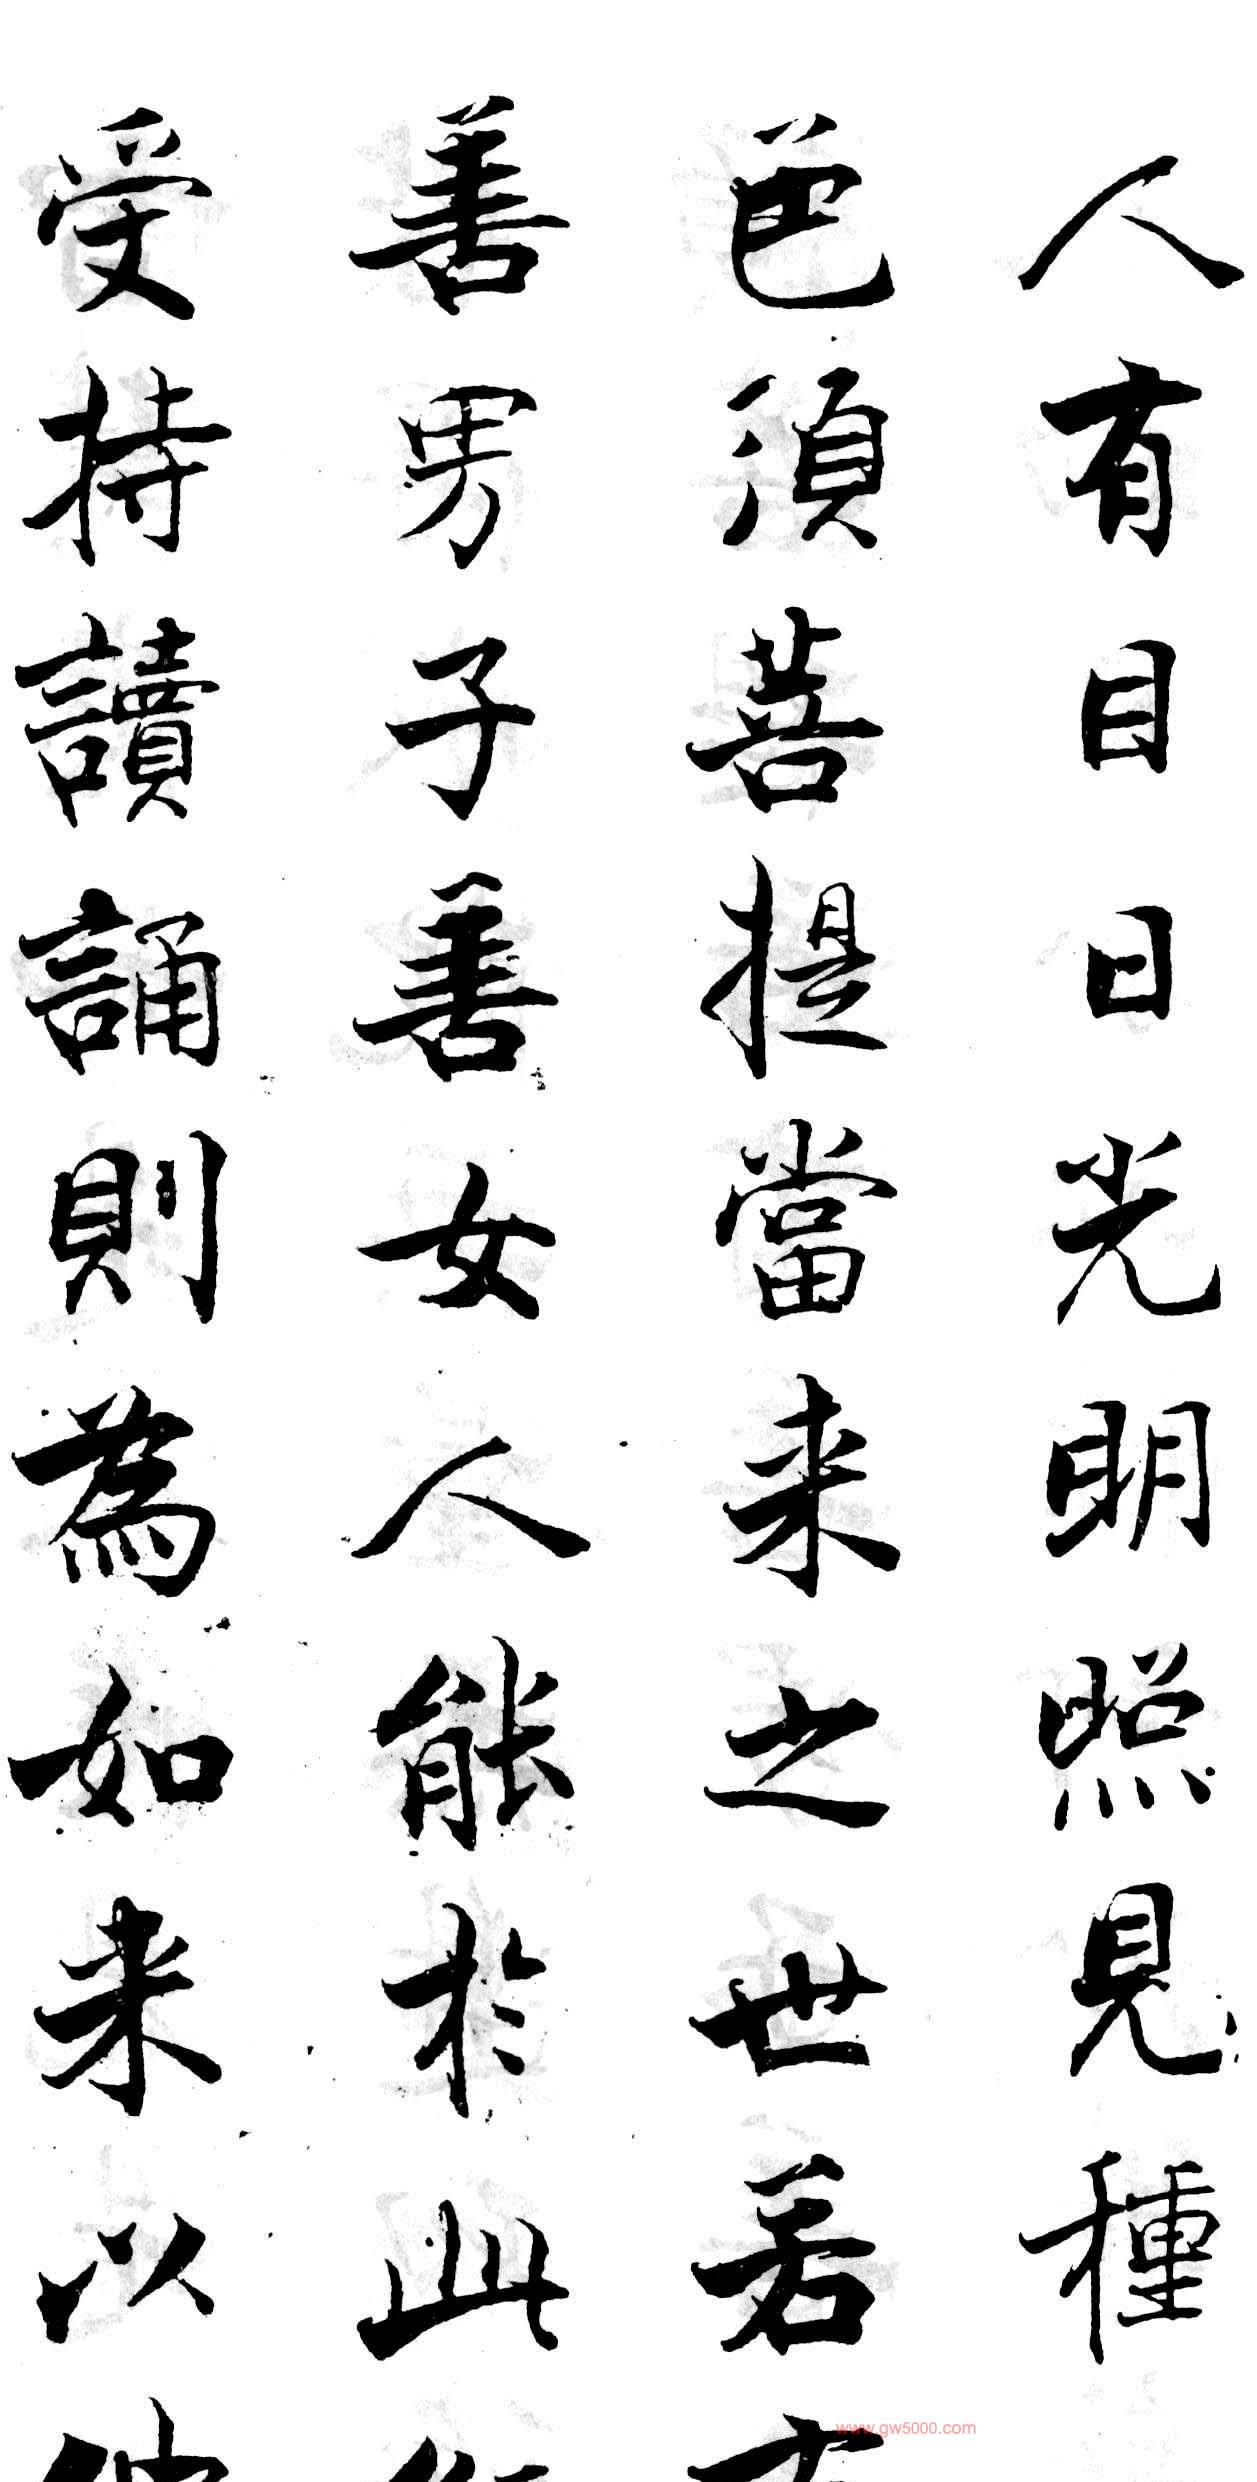 人有目日光明照見種
色須菩提當来之世若
善男子善女人能於此
受持讀誦則為如来以
www.gw5000.com